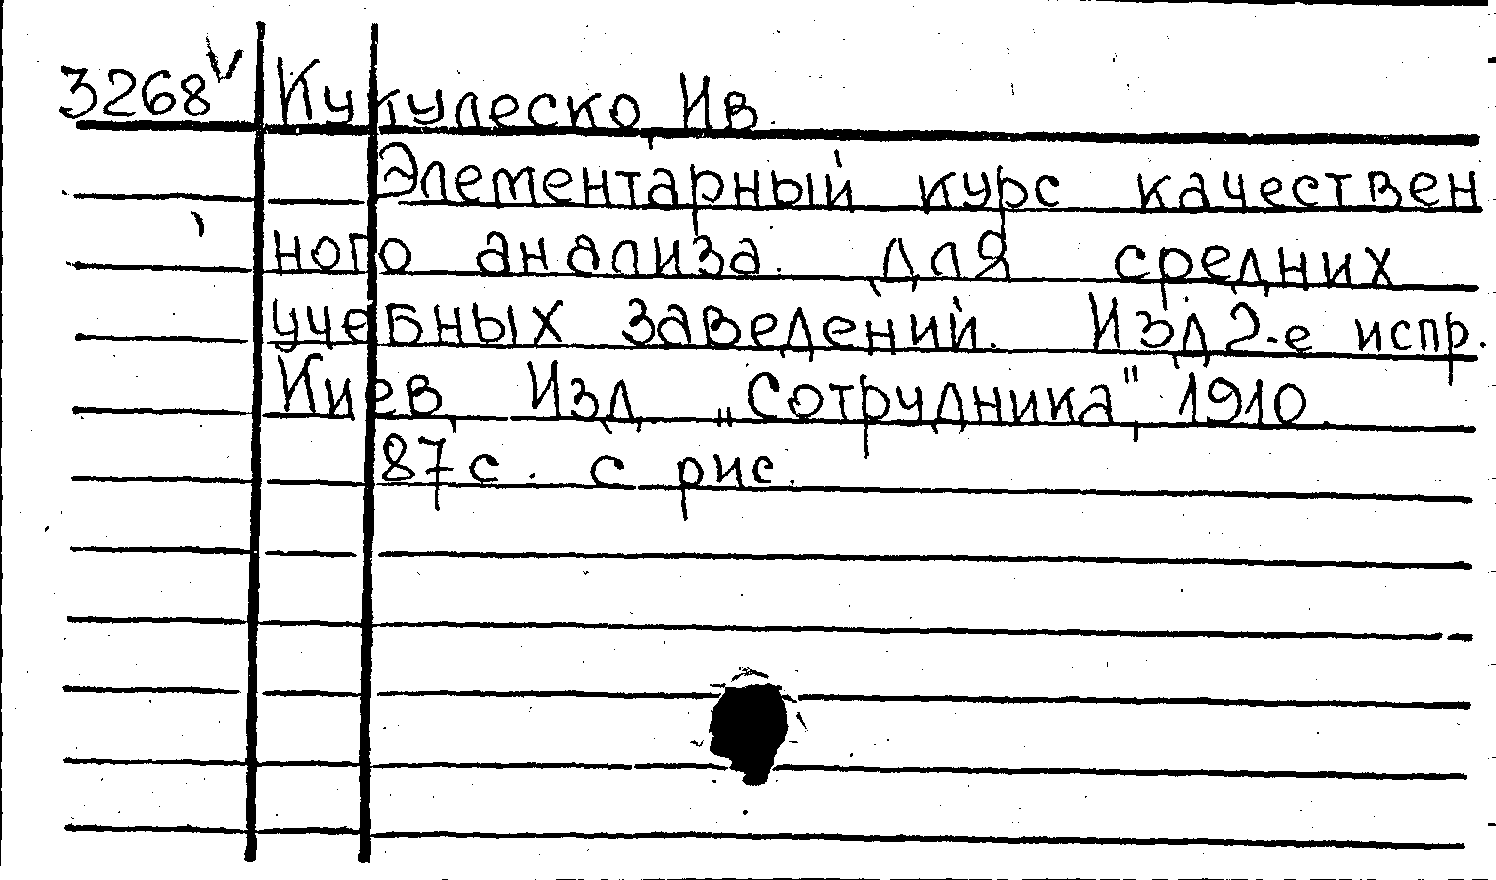 3268 V Кукулеско, Ив.
Элементарный курс качествен
ного анализа. Для средних
учебных заведений. Изд 2-е испр.
Киев, Изд. „Сотрудника", 1910.
87 с. с рис.